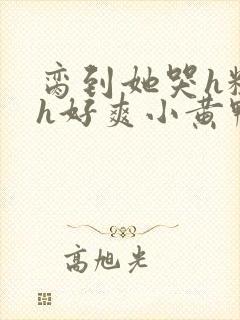 脔到她哭h粗
h好爽小黄鸭
高旭光